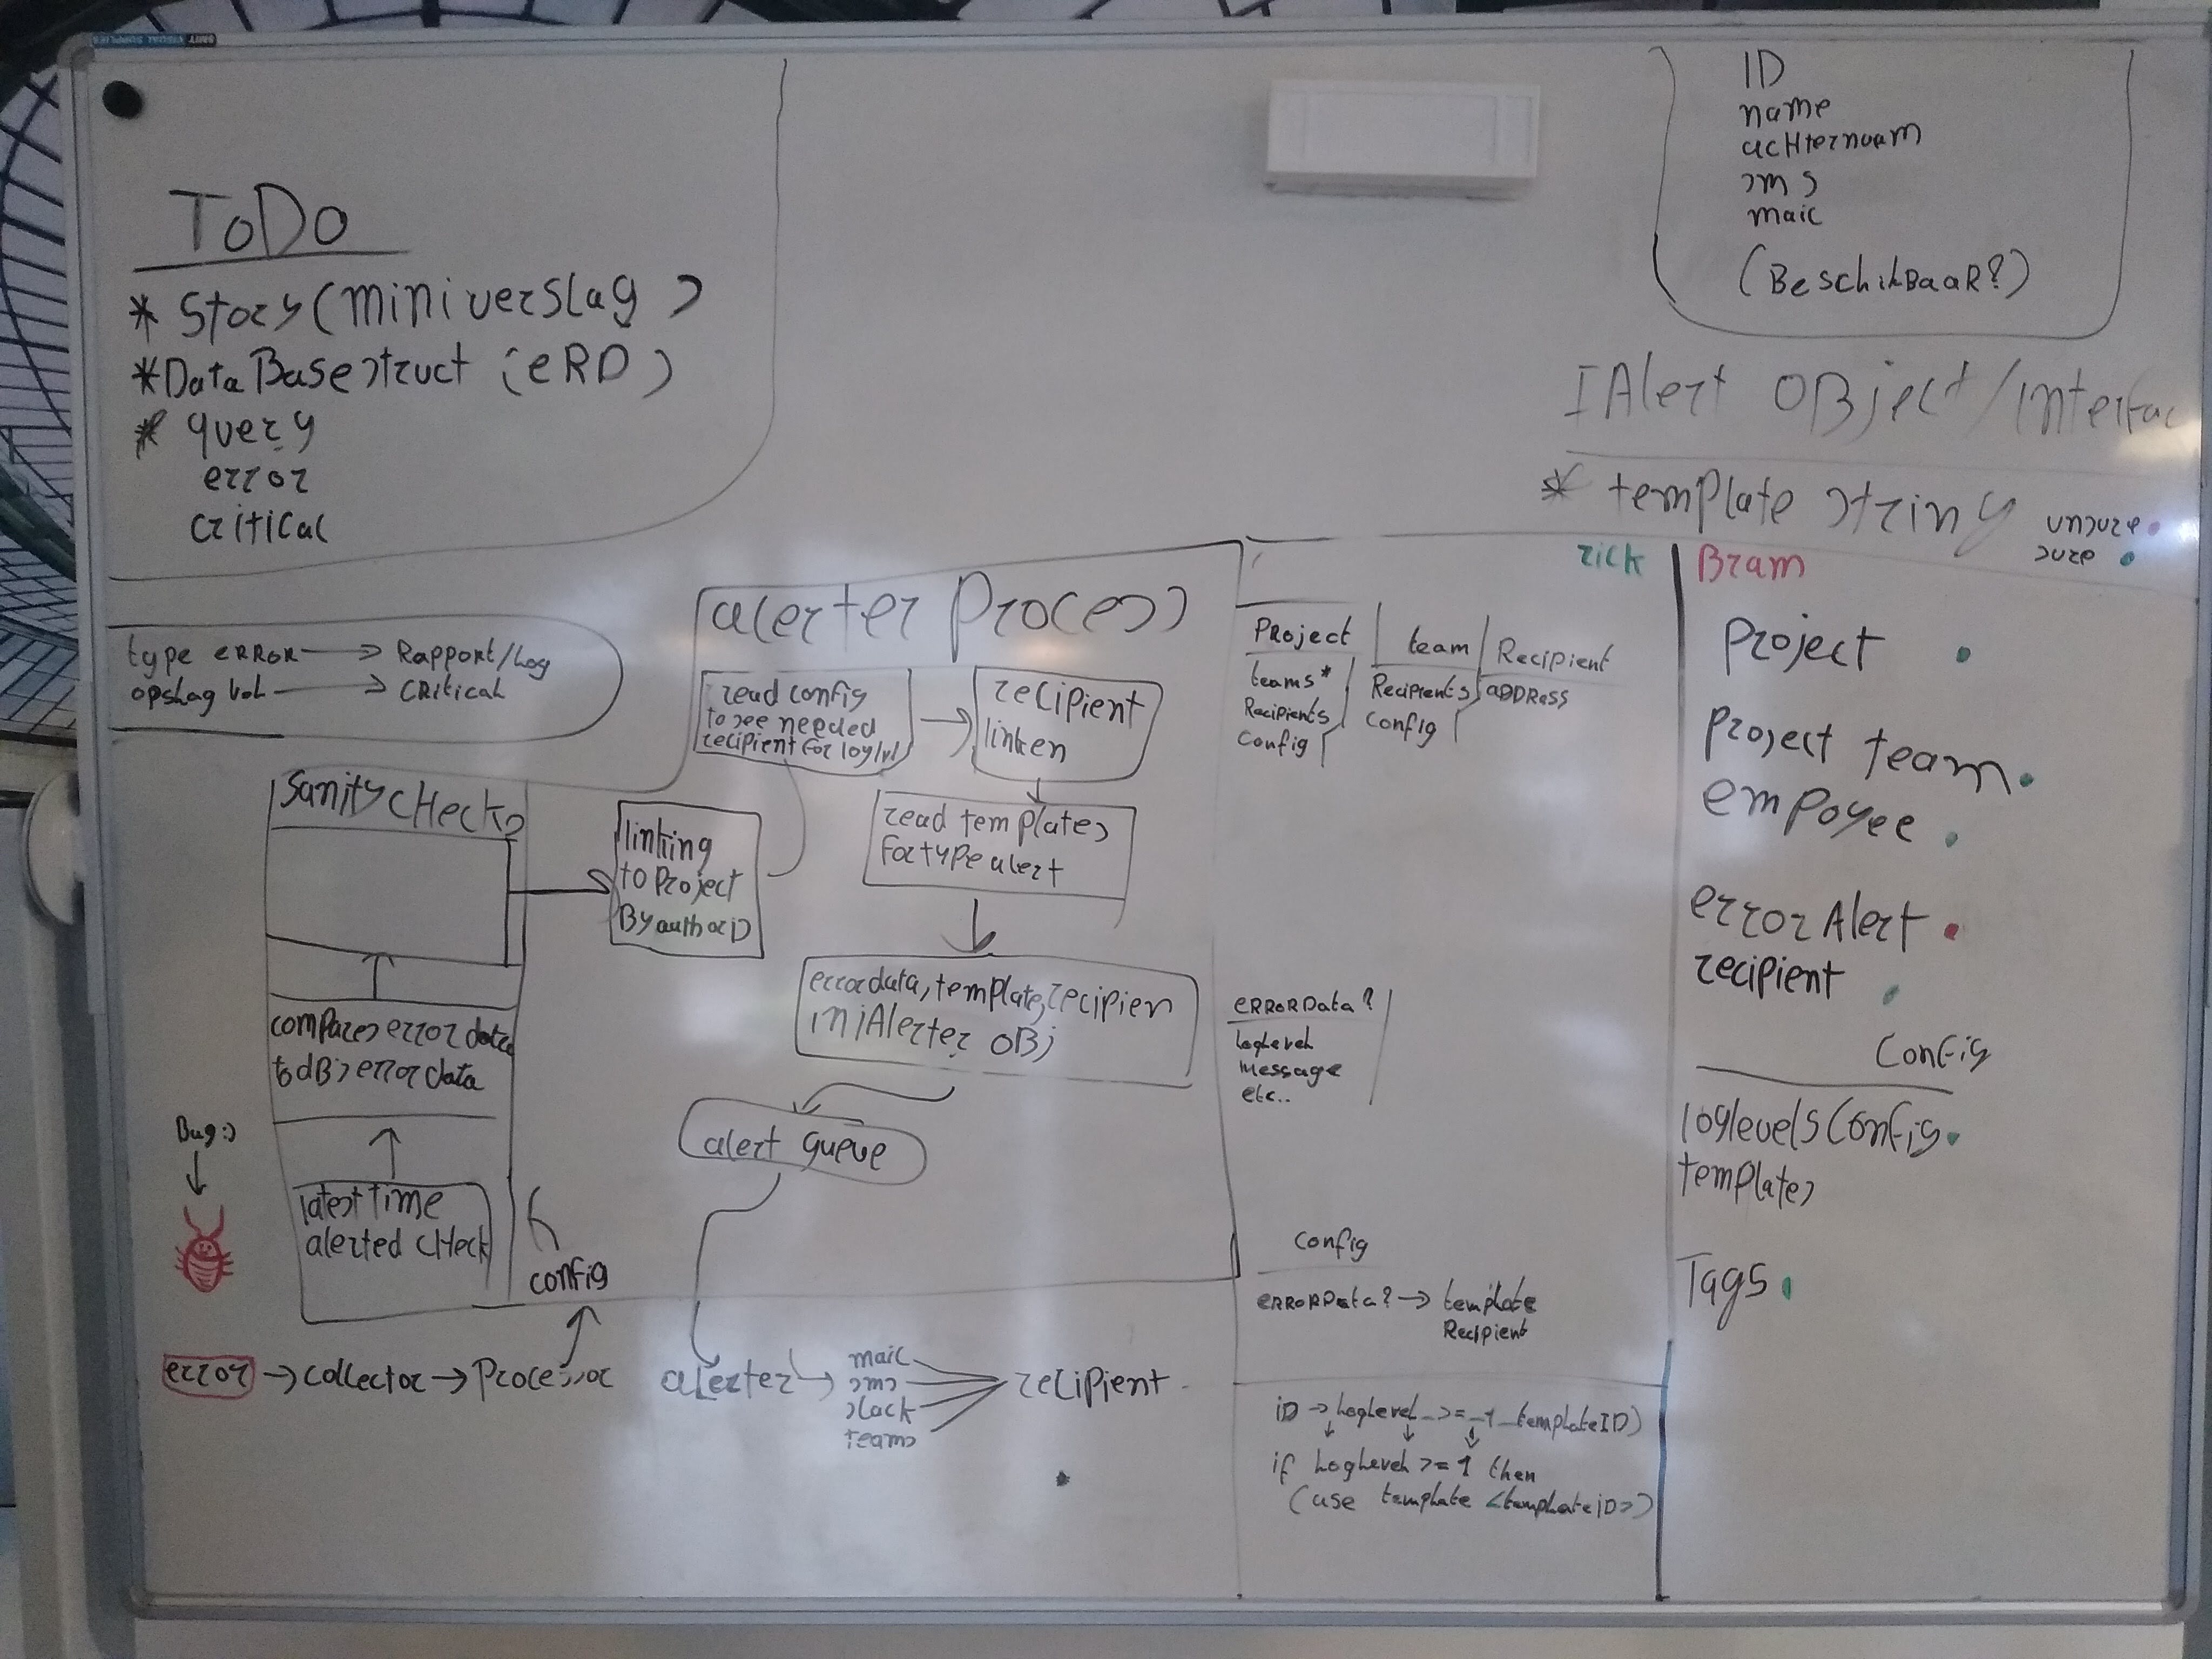 SMIT VISUAL SUPPLIES
ToDo
* Story (miniverslag)
* DataBasestruct (eRD)
* query
error
critical
ID
name
acHternaam
sms
mail
(BeschikBaaR?)
IAlert OBject/interfac
* template string
unsure
sure
type eRRoR → Rapport/Log
opslag vol → CRitical
alerter Process
read config
to see needed
recipient for loglvl
recipient
linken
read templates
For type alert
errordata, template, recipien
in iAlerter OBj
alert queue
linking
to Project
By authorID
SanityCHecks
compares error data
to dB's error data
latest time
alerted cHeck
Bug :)
config
error → collector → Processor
alerter →
mail
sms
slack
teams
recipient
rick
PRoject
teams*
Recipients
Config
team
Recipients
Config
Recipient
aDDRess
eRRoRData?
LogLevel
Message
etc..
Config
eRRoRData? → template
Recipient
iD → LogLevel_>=_1_templateID)
if LogLevel >= 1 then
(use template <templateiD>)
Bram
Project
Project team
empoyee
errorAlert
recipient
Config
loglevelsConfig
templates
Tags